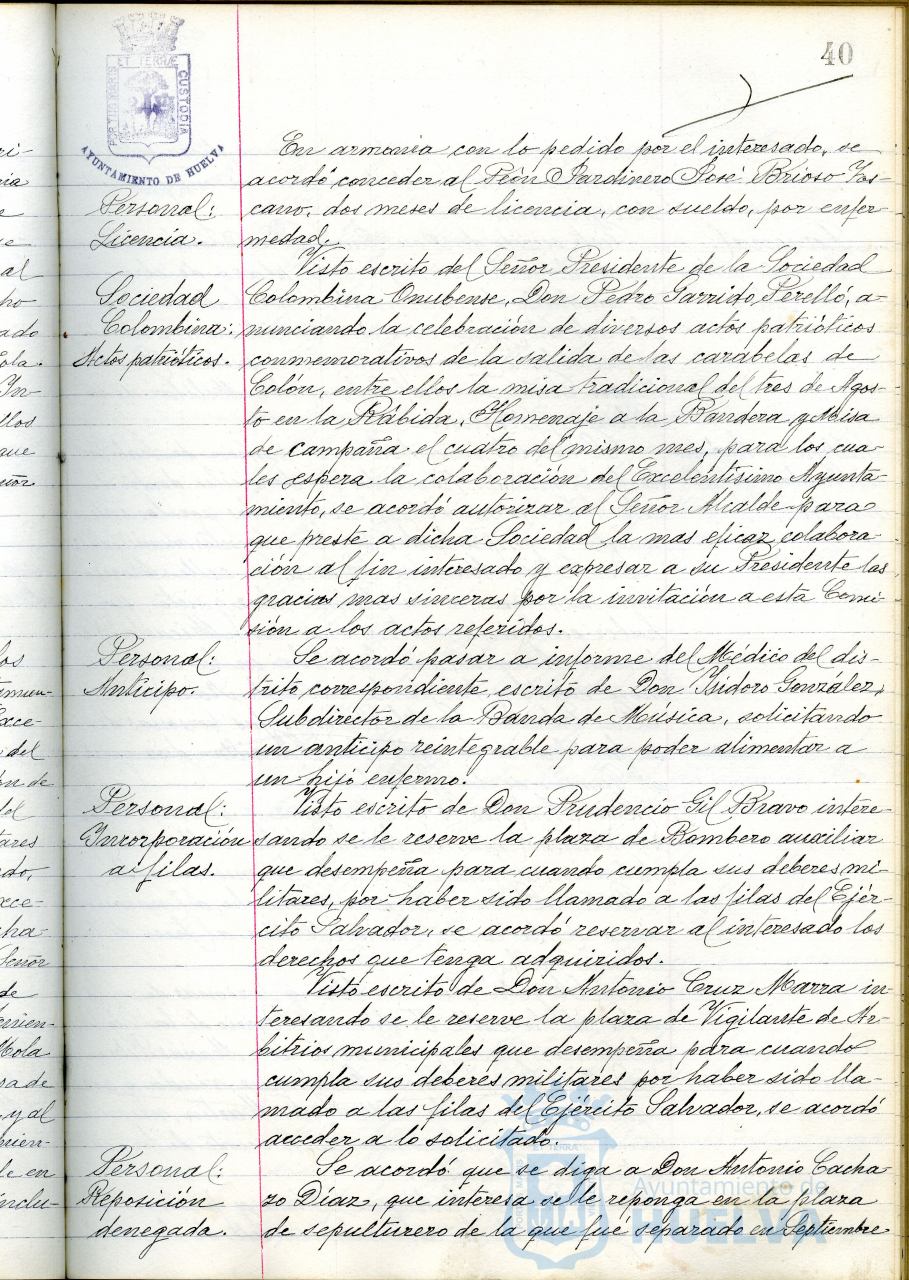 40
PORTUS MARIS ET TERRÆ CUSTODIA
AYUNTAMIENTO DE HUELVA
En armonia con lo pedido por el interesado, se
acordó conceder al Peón Jardinero José Brioso Tos-
Personal:
cano, dos meses de licencia, con sueldo, por enfer-
Licencia.
medad.
Visto escrito del Señor Presidente de la Sociedad
Sociedad
Colombina Onubense, Don Pedro Garrido Perelló, a-
Colombina:
nunciando la celebración de diversos actos patrióticos
Actos patrióticos.
conmemorativos de la salida de las carabelas de
Colón, entre ellos la misa tradicional del tres de Agos-
to en la Rábida, Homenaje a la Bandera y Misa
de campaña el cuatro del mismo mes, para los cua-
les espera la colaboración del Excelentísimo Ayunta-
miento, se acordó autorizar al Señor Alcalde para
que preste a dicha Sociedad la mas eficaz colabora-
ción al fin interesado y expresar a su Presidente las
gracias mas sinceras por la invitación a esta Comi-
sión a los actos referidos.
Personal:
Se acordó pasar a informe del Médico del dis-
Anticipo.
trito correspondiente, escrito de Don Isidoro González,
Subdirector de la Banda de Música, solicitando
un anticipo reintegrable para poder alimentar a
un hijo enfermo.
Personal:
Visto escrito de Don Prudencio Gil Bravo intere-
Incorporación
sando se le reserve la plaza de Bombero auxiliar
a filas.
que desempeña para cuando cumpla sus deberes mi-
litares, por haber sido llamado a las filas del Ejér-
cito Salvador, se acordó reservar al interesado los
derechos que tenga adquiridos.
Visto escrito de Don Antonio Cruz Marra in-
teresando se le reserve la plaza de Vigilante de Ar-
bitrios municipales que desempeña para cuando
cumpla sus deberes militares por haber sido lla-
mado a las filas del Ejército Salvador, se acordó
acceder a lo solicitado.
Personal:
Se acordó que se diga a Don Antonio Cacha-
Reposición
zo Díaz, que interesa se le reponga en la plaza
denegada.
de sepulturero de la que fué separado en Septiembre
Ayuntamiento de
HUELVA